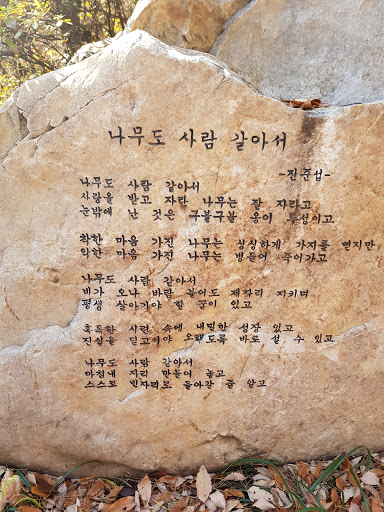 나무도 사람 같아서
-진준섭-
나무도 사람 같아서
사랑을 받고 자란 나무는 잘 자라고
눈밖에 난 것은 구불구불 옹이 투성이고
착한 마음 가진 나무는 싱싱하게 가지를 뻗지만
악한 마음 가진 나무는 병들어 죽어가고
나무도 사람 같아서
비가 오나 바람 불어도 제자리 지키며
평생 살아가야 할 꿈이 있고
혹독한 시련 속에 내밀한 성장 있고
진실을 딛고서야 오래도록 바로 설 수 있고
나무도 사람 같아서
마침내 자리 만들어 놓고
스스로 빈자리로 돌아갈 줄 알고